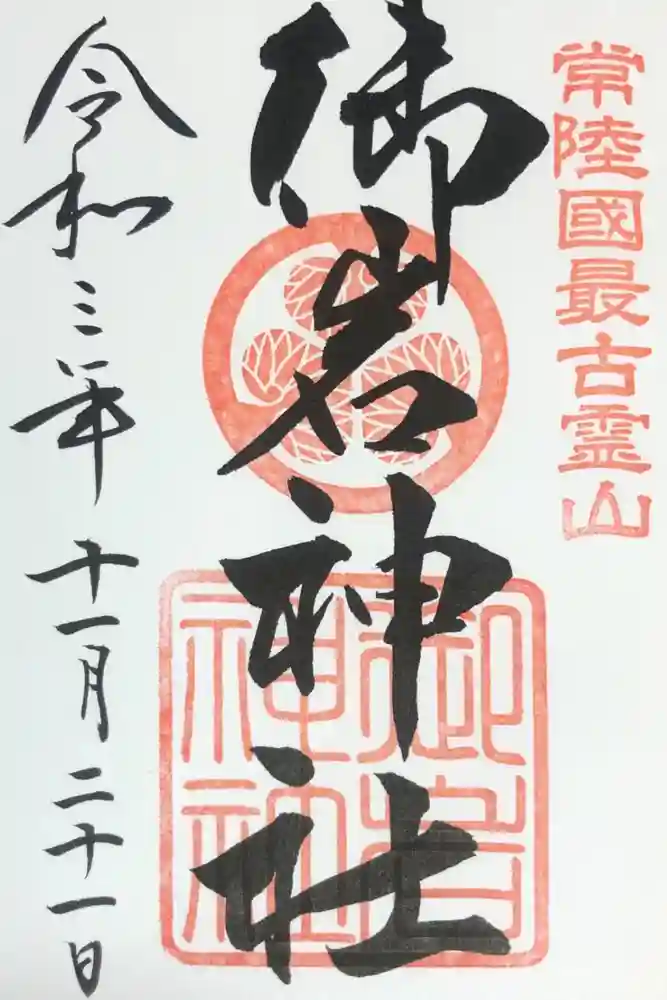 常陸國最古霊山
御岩神社
御岩
神社
令和三年十一月二十一日